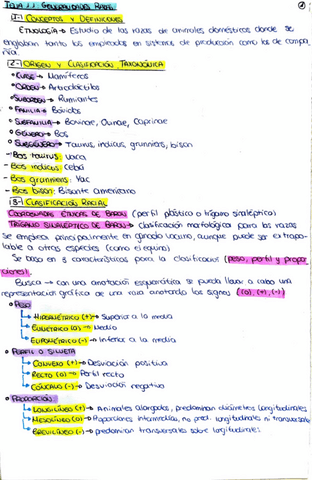 TEMA 1.1. GENERALIDADES RAZAS
1.- CONCEPTOS Y DEFINICIONES
ETNOLOGÍA → Estudio de las razas de animales domésticos donde se
engloban tanto los empleados en sistemas de producción como los de compa-
ñía.
2.- ORIGEN Y CLASIFICACIÓN TAXONÓMICA
• CLASE → Mamíferos
• ORDEN → Artiodáctilos
• SUBORDEN → Rumiantes
• FAMILIA → Bóvidos
• SUBFAMILIA → Bovinae, Ovinae, Caprinae
• GÉNERO → Bos
• SUBGÉNERO → Taurus, indicus, grunniens, bison
- Bos taurus: vaca
- Bos indicus: Cebú
- Bos grunniens: Yac
- Bos bison: Bisonte americano
3.- CLASIFICACIÓN RACIAL
COORDENADAS ÉTNICAS DE BARÓN (perfil plástico o trígamo sinaléptico)
TRÍGAMO SINALÉPTICO DE BARÓN → Clasificación morfológica para las razas
Se emplea principalmente en ganado vacuno, aunque puede ser extrapo-
lable a otras especies (como el equino)
Se basa en 3 características para la clasificación (peso, perfil y propor
ciones).
Busca → con una anotación esquemática se pueda llevar a cabo una
representación gráfica de una raza anotando los signos ((0), (+), (-))
• PESO
HIPERMÉTRICO (+) → Superior a la media
EUMÉTRICO (0) → Medio
ELIPOMÉTRICO (-) → Inferior a la media
• PERFIL O SILUETA
CONVEXO (+) → Desviación positiva
RECTO (0) → Perfil recto
CÓNCAVO (-) → Desviación negativa
• PROPORCIÓN
LONGILÍNEO (+) → Animales alargados, predominan diámetros longitudinales
MESOLÍNEO (0) → Proporciones intermedias, no pred. longitudinales ni transversale
BREVILÍNEO (-) → predominan transversales sobre longitudinales